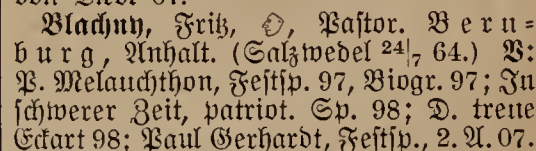 Blachny, Fritz, Pastor. Bern=
burg, Anhalt. (Salzwedel 24|7 64.) V:
P. Melanchthon, Festsp. 97, Biogr. 97; In
schwerer Zeit, patriot. Sp. 98; D. treue
Eckart 98; Paul Gerhardt, Festsp., 2. A. 07.